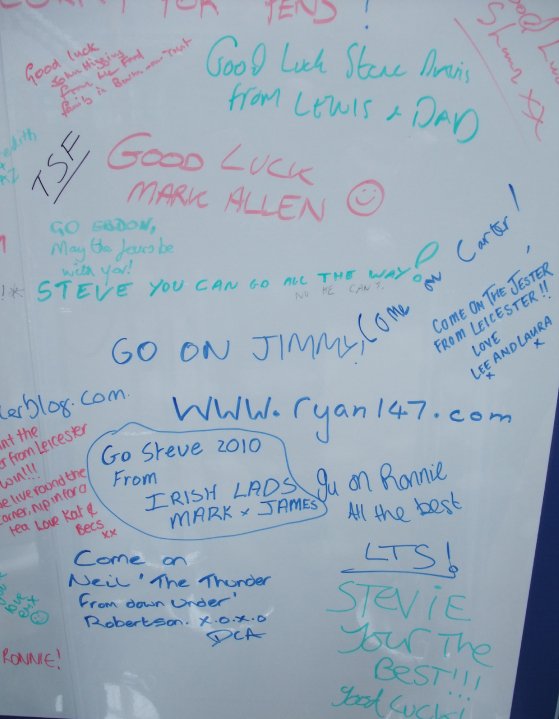 FOR TENS!
Good luck
John Higgins
from the Ford
family in
Good Luck Steve Davis
from LEWIS & DAD
Good Luck
Shaun xx
TSF
GOOD LUCK
MARK ALLEN
GO EBDON,
May the fours be
with you!
STEVE YOU CAN GO ALL THE WAY!
NO HE CAN'T.
Come on Carter!
COME ON THE JESTER
FROM LEICESTER!!
LOVE
LEE AND LAURA
x x
GO ON JIMMY!
erblog.com.
WWW.ryan147.com
nt the
er from Leicester
win!!!
e live round the
corner, nip in for a
tea Love Kat &
Becs xx
Go Steve 2010
From
IRISH LADS
MARK & JAMES
gu on Ronnie
All the best
LTS!
Come on
Neil 'The Thunder
From down Under'
Robertson. x.o.x.o
DCA
STEVIE
Your THE
BEST!!!
Good Luck!
RONNIE!